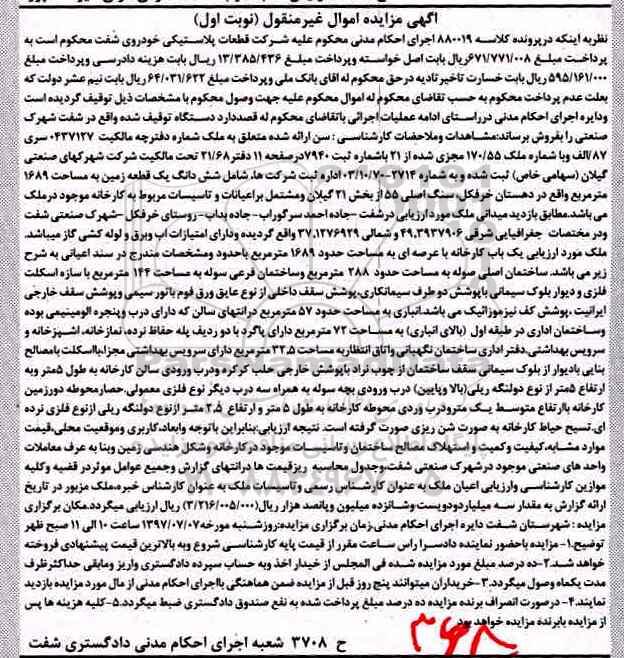 آگهی مزایده اموال غیرمنقول (نوبت اول)
نظربه اینکه درپرونده کلاسه ۸۸۰۰۱۹ اجرای احکام مدنی محکوم علیه شرکت قطعات پلاستیکی خودروی شفت محکوم است به
پرداخت مبلغ ۶۷۱/۷۷۱/۰۰۸ریال بابت اصل خواسته وپرداخت مبلغ ۱۳/۳۸۵/۴۳۶ ریال بابت هزینه دادرسی وپرداخت مبلغ
۵۹۵/۱۶۱/۰۰۰ ریال بابت خسارت تاخیر تادیه درحق محکوم له اقای بانک ملی وپرداخت مبلغ ۶۴/۰۳۱/۶۲۲ ریال بابت نیم عشر دولت که
بعلت عدم پرداخت محکوم به حسب تقاضای محکوم له اموال محکوم علیه جهت وصول محکوم با مشخصات ذیل توقیف گردیده است
ودایره اجرای احکام مدنی درراستای ادامه عملیات اجرائی باتقاضای محکوم له قصددارد دستگاه توقیف شده واقع در شفت شهرک
صنعتی را بفروش برساند:مشاهدات وملاحضات کارشناسی : سن ارائه شده متعلق به ملک شماره دفترچه مالکیت ۰۴۳۷۱۲۷ سری
۸۷/الف وبا شماره ملک ۱۷۰/۵۵ مجزی شده از ۲۱ باشماره ثبت ۷۹۴۰درصفحه ۱۱ دفتر ۲۱/۶۸ تحت مالکیت شرکت شهرکهای صنعتی
گیلان (سهامی خاص) ثبت شده و به شماره ۲۷۱۴-۰۳/۱۰/۷۰اداره ثبت شرکت ها، شامل شش دانگ یک قطعه زمین به مساحت ۱۶۸۹
مترمربع واقع در دهستان خرفکل،سنگ اصلی ۵۵ از بخش ۲۱ گیلان ومشتمل براعیانات و تاسیسات مربوط به کارخانه موجود درملک
می باشد.مطابق بازدید میدانی ملک مورد ارزیابی درشفت -جاده احمد سرگوراب- جاده پداب-روستای خرفکل -شهرک صنعتی شفت
ودر مختصات جغرافیایی شرقی ۴۹،۳۹۳۷۹۰۶ و شمالی ۳۷،۱۲۷۶۹۲۹ واقع گردیده ودارای امتیازات اب وبرق و لوله کشی گاز میباشد.
ملک مورد ارزیابی یک باب کارخانه با عرصه ای به مساحت حدود ۱۶۸۹ مترمربع باحدود ومشخصات مندرج در سند اعیانی به شرح
زیر می باشد. ساختمان اصلی صوله به مساحت حدود ۲۸۸ مترمربع وساختمان فرعی سوله به مساحت ۱۴۴ مترمربع با سازه اسکلت
فلزی و دیوار بلوک سیمانی باپوشش دو طرف سیمانکاری،پوشش سقف داخلی از نوع عایق ورق فوم باتور سیمی وپوشش سقف خارجی
ایرانیت ،پوشش کف نیزموزائیک می باشد.انباری به مساحت حدود ۵۷ مترمربع درانتهای سالن که دارای درب وپنجره الومینیمی بوده
وساختمان اداری در طبقه اول (بالای انباری) به مساحت ۷۲ مترمربع دارای پاگرد با دو ردیف پله حفاظ نرده، نمازخانه، اشپزخانه و
سرویس بهداشتی.دفتر اداری ساختمان نگهبانی واتاق انتظاربه مساحت ۳۲،۵ مترمربع دارای سرویس بهداشتی مجزابااسکلت بامصالح
بنایی بادیوار از بلوک سیمانی سقف ساختمان از چوب نراد باپوشش خارجی حلب کرکره ودرب ورودی سالن کارخانه به طول ۵متر وبه
ارتفاع ۵متر از نوع دولنگه ریلی(بالا وپایین) درب ورودی بچه سوله به همراه سه درب دیگر نوع فلزی معمولی،حصارمحوطه دورزمین
کارخانه باارتفاع متوسط یک مترودرب وردی محوطه کارخانه به طول ۵ متر و ارتفاع ۲،۵ متر ازنوع دولنگه ریلی ازنوع فلزی نرده
ای.تسیح حیاط کارخانه به صورت شن ریزی صورت گرفته است. نتیجه ارزیابی:بنابراین باتوجه وابعاد،کاربری وموقعیت محلی،قیمت
موارد مشابه،کیفیت و کمیت و استهلاک مصالح ساختمان وتاسیسات موجود درکارخانه وشکل هنسی زمین وبنا به عرف معاملات
واحد های صنعتی موجود درشهرک صنعتی شفت،وجدول محاسبه ریزقیمت ها درانتهای گزارش وجمیع عوامل موثردر قضیه وکلیه
موازین کارشناسی وارزیابی اعیان ملک به عنوان کارشناس رسمی وتاسیسات ملک به عنوان کارشناس خبره،ملک مزبور در تاریخ
ارائه گزارش به مقدار سه میلیاردودویست وشانزده میلیون وپانصد هزار ریال (۳/۲۱۶/۰۰۵/۰۰۰) ریال ارزیابی میگردد.مکان برگزاری
مزایده : شهرستان شفت دایره اجرای احکام مدنی.زمان برگزاری مزایده:روزشنبه مورخه۱۳۹۷/۰۷/۰۷ ساعت ۱۰ الی ۱۱ صبح ظهر
توضیح.۱- مزایده باحضور نماینده دادسرا راس ساعت مقرر از قیمت پایه کارشناسی شروع وبه بالاترین قیمت پیشنهادی فروخته
خواهد شد.۲-ده درصد مبلغ مورد مزایده شده فی المجلس از خیدار اخذ وبه حساب سپرده دادگستری واریز ومابقی حداکثرظرف
مدت یکماه وصول میگردد.۳-خریداران میتوانند پنج روز قبل از مزایده ضمن هماهنگی بااجرای احکام مدنی از مال مورد مزایده بازدید
نمایند.۴- درصورت انصراف برنده مزایده ده درصد مبلغ پرداخت شده به نفع صندوق دادگستری ضبط میگردد.۵-کلیه هزینه ها پس
از مزایده بابرنده مزایده خواهد بود.
ح ۳۷۰۸ شعبه اجرای احکام مدنی دادگستری شفت